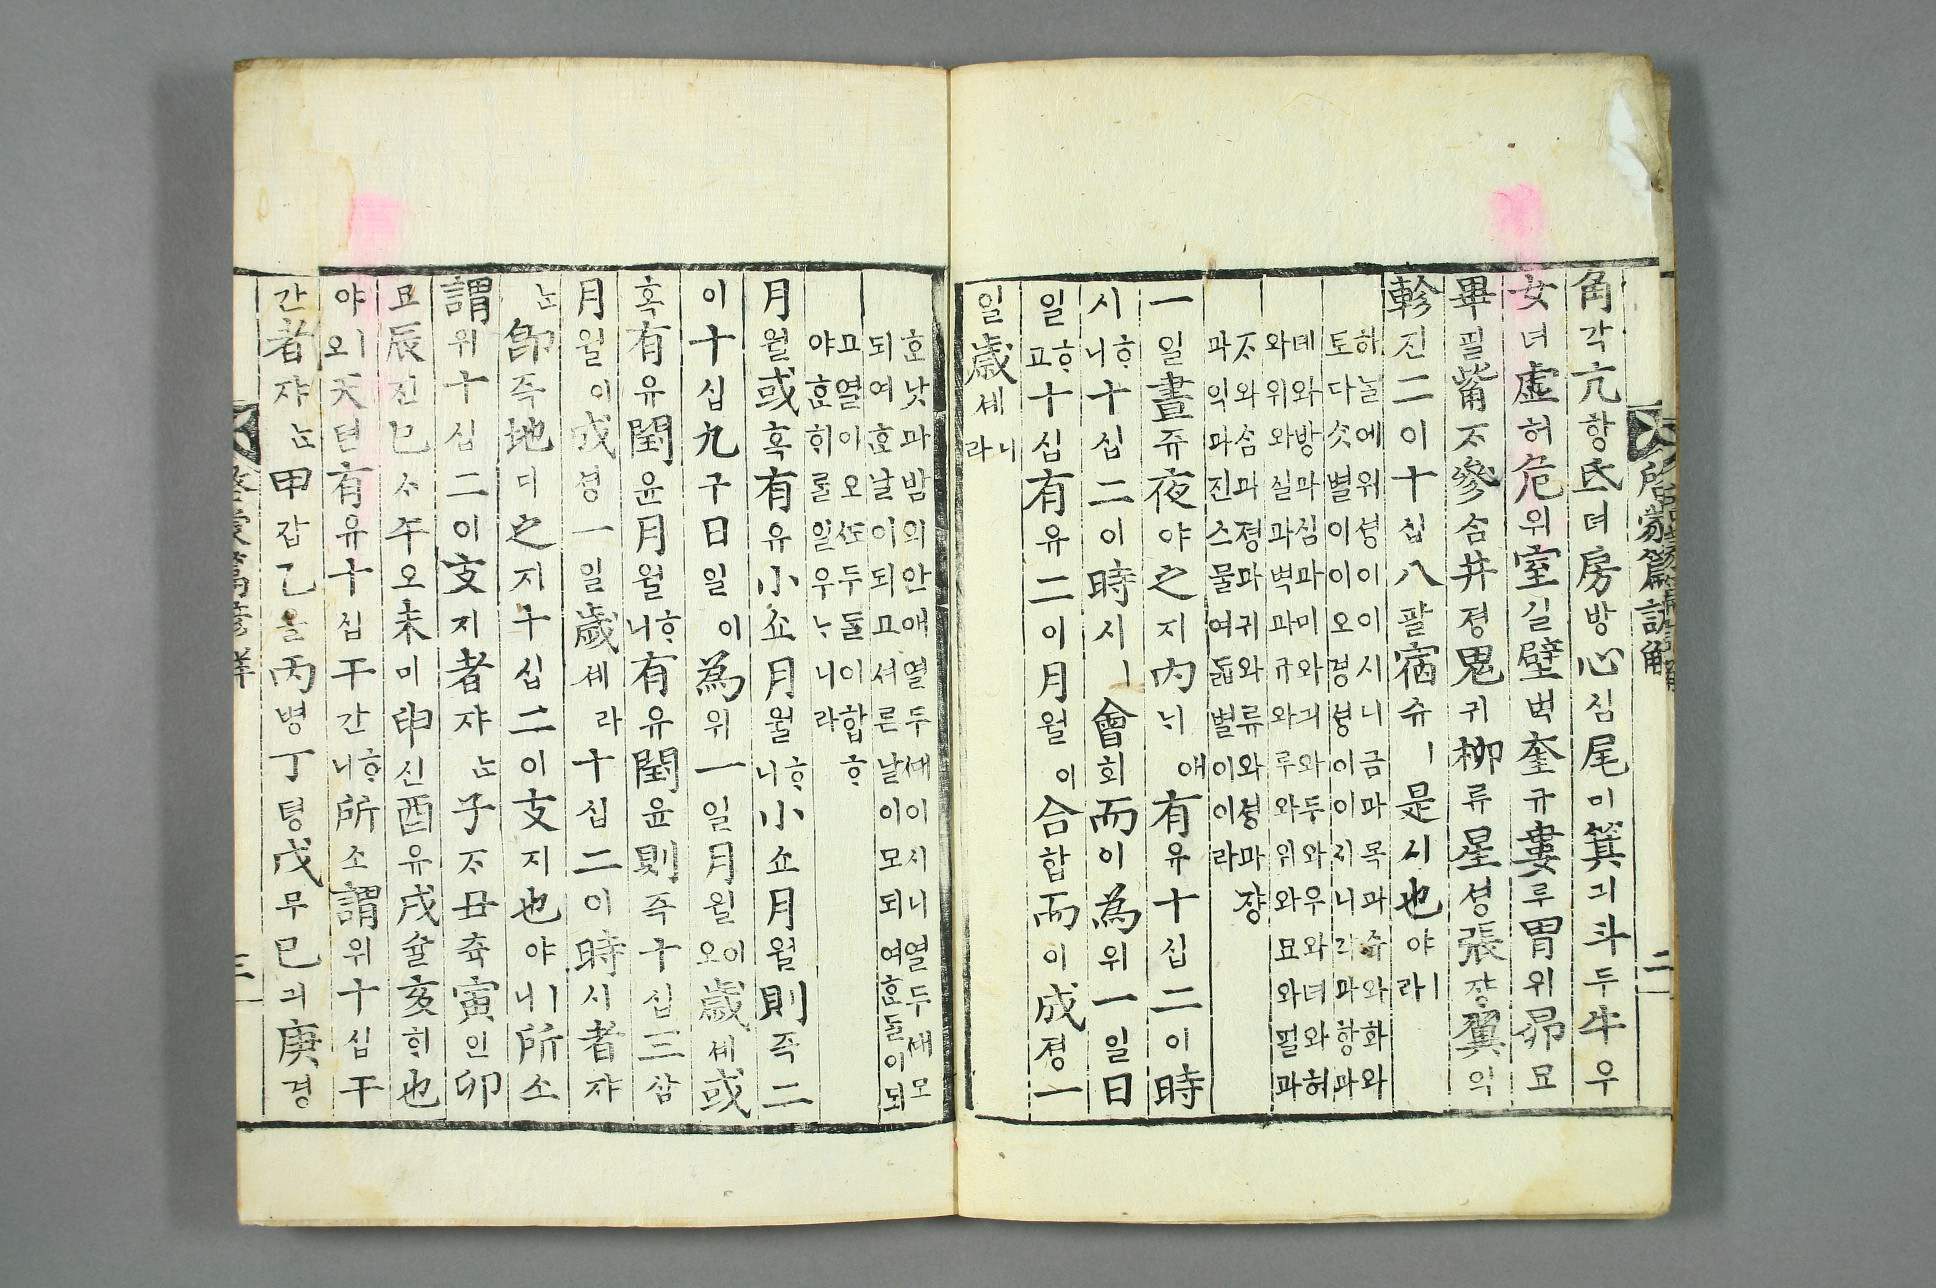 啓蒙篇諺解 二
角각亢항氐뎌房방心심尾미箕긔斗두牛우
女녀虛허危위室실壁벽奎규婁루胃위昴묘
畢필觜ᄌᆞ參ᄉᆞᆷ井졍鬼귀柳류星셩張쟝翼익
軫진二이十십八팔宿슈ㅣ是시也야ㅣ라
하ᄂᆞᆯ에위셩이이시니금과목과슈와화와
토다ᄉᆞᆺ별이이오경셩이이시니각과항과
뎌와방과심과미와긔와두와우와녀와허
와위와실과벽과규와루와위와묘와필과
ᄌᆞ와ᄉᆞᆷ과졍과귀와류와셩과쟝
과익과진스물여ᄃᆞᆲ별이이라
一일晝쥬夜야之지內ᄂᆡ애有유十십二이時
시ᄒᆞ니十십二이時시ㅣ會회而이為위一일日
일ᄒᆞ고十십有유二이月월이合합而이成셩一
일歲셰니라
ᄒᆞᆫ낫과밤의안애열두ᄯᅢ이시니열두ᄯᅢ모
되여ᄒᆞᆫ날이되고셔른날이모되여ᄒᆞᆫᄃᆞᆯ이되
고열이오ᄯᅩ두ᄃᆞᆯ이합ᄒᆞ
야ᄒᆞᆫᄒᆡ를일우ᄂᆞ니라
月월或혹有유小쇼月월ᄒᆞ니小쇼月월則즉二
이十십九구日일이為위一일月월이오歲셰或
혹有유閏윤月월ᄒᆞ니有유閏윤則즉十십三삼
月월이成셩一일歲셰라十십二이時시者쟈
ᄂᆞᆫ卽즉地디之지十십二이支지也야ㅣ니所소
謂위十십二이支지者쟈ᄂᆞᆫ子ᄌᆞ丑츅寅인卯
묘辰진巳ᄉᆞ午오未미申신酉유戌슐亥ᄒᆡ也
야ㅣ오天텬有유十십干간ᄒᆞ니所소謂위十십干
간者쟈ᄂᆞᆫ甲갑乙을丙병丁뎡戊무己긔庚경
啓蒙篇諺解 三